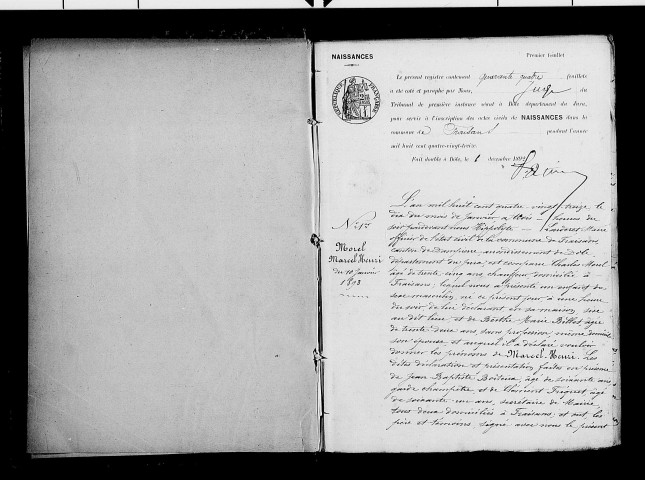 NAISSANCES
Premier feuillet
Le présent registre contenant quarante quatre feuillets
a été coté et paraphé par Nous, Juge du
Tribunal de première instance séant à Dôle département du Jura,
pour servir à l'inscription des actes civils de NAISSANCES dans la
commune de Fraisans pendant l'année
mil huit cent quatre-vingt-treize.
Fait double à Dôle, le 1 décembre 1892
RÉPUBLIQUE FRANÇAISE
N° 1er
Morel
Marcel Henri
du 10 janvier
1893
L'an mil huit cent quatre vingt treize, le
dix du mois de Janvier à trois heures du
soir pardevant nous Hippolyte Landrot Maire
officier de l'état civil de la commune de Fraisans,
canton de Dampierre, arrondissement de Dole
département du Jura, est comparu Charles Morel
âgé de trente cinq ans, chauffeur, domicilié à
Fraisans; lequel nous a présenté un enfant du
sexe masculin, né ce présent jour, à une heure
du soir, de lui déclarant en sa maison, sise
au dit lieu et de Berthe Marie Billot âgée
de trente deux ans, sans profession, même domicile
son épouse et auquel il a déclaré vouloir
donner les prénoms de Marcel Henri. Les
dites déclaration et présentation faites en présence
de Jean Baptiste âgé de soixante ans
garde champêtre et de Clément âgé
de soixante un ans, secrétaire de Mairie,
tous deux domiciliés à Fraisans; et ont les
père et témoins signé avec nous le présent